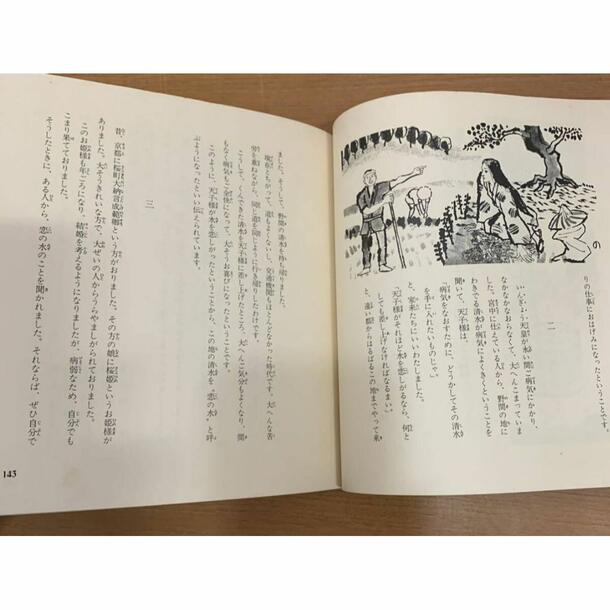 の
りの仕事におはげみになったということです。
二
いんぎょう天皇が永い間ご病気にかかり、
なかなかなおらなくて、大へんこまっていま
した。宮中に仕えている人から、野間の地に
わきでる清水が病気によくきくということを
聞いて、天子様は、
「病気をなおすために、どうかしてその清水
を手に入れたいものじゃ。」
と、家来たちにいいわたしました。
「天子様がそれほど水を恋しがるなら、何と
しても差し上げなければなるまい。」
と、遠い都からはるばるこの地までやって来
ました。そうして、野間の清水を持ち帰りました。
現在とちがって、道もよくないし、交通機関もほとんどなかった時代です。大へんな苦
労を重ねながら、同じ道を同じように行き帰りしたわけです。
こうして、くんできた清水を天子様に差し上げたところ、大へんご気分もよくなり、間
もなく病気もご全快になって、大そうお喜びになったということです。
このように、天子様が水を恋しがったということから、この地の清水を「恋の水」と呼
ぶようになったといい伝えられています。
三
昔、京都に桜町大納言成範卿という方がおりました。その方の娘に桜姫というお姫様が
ありました。大そうきれいな方で、大ぜいの人からうらやましがられておりました。
このお姫様も年ごろになり、結婚を考えるようになりましたが、病弱なため、自分でも
こまり果てておりました。
そうしたときに、ある人から、恋の水のことを聞かれました。それならば、ぜひ自分で
143